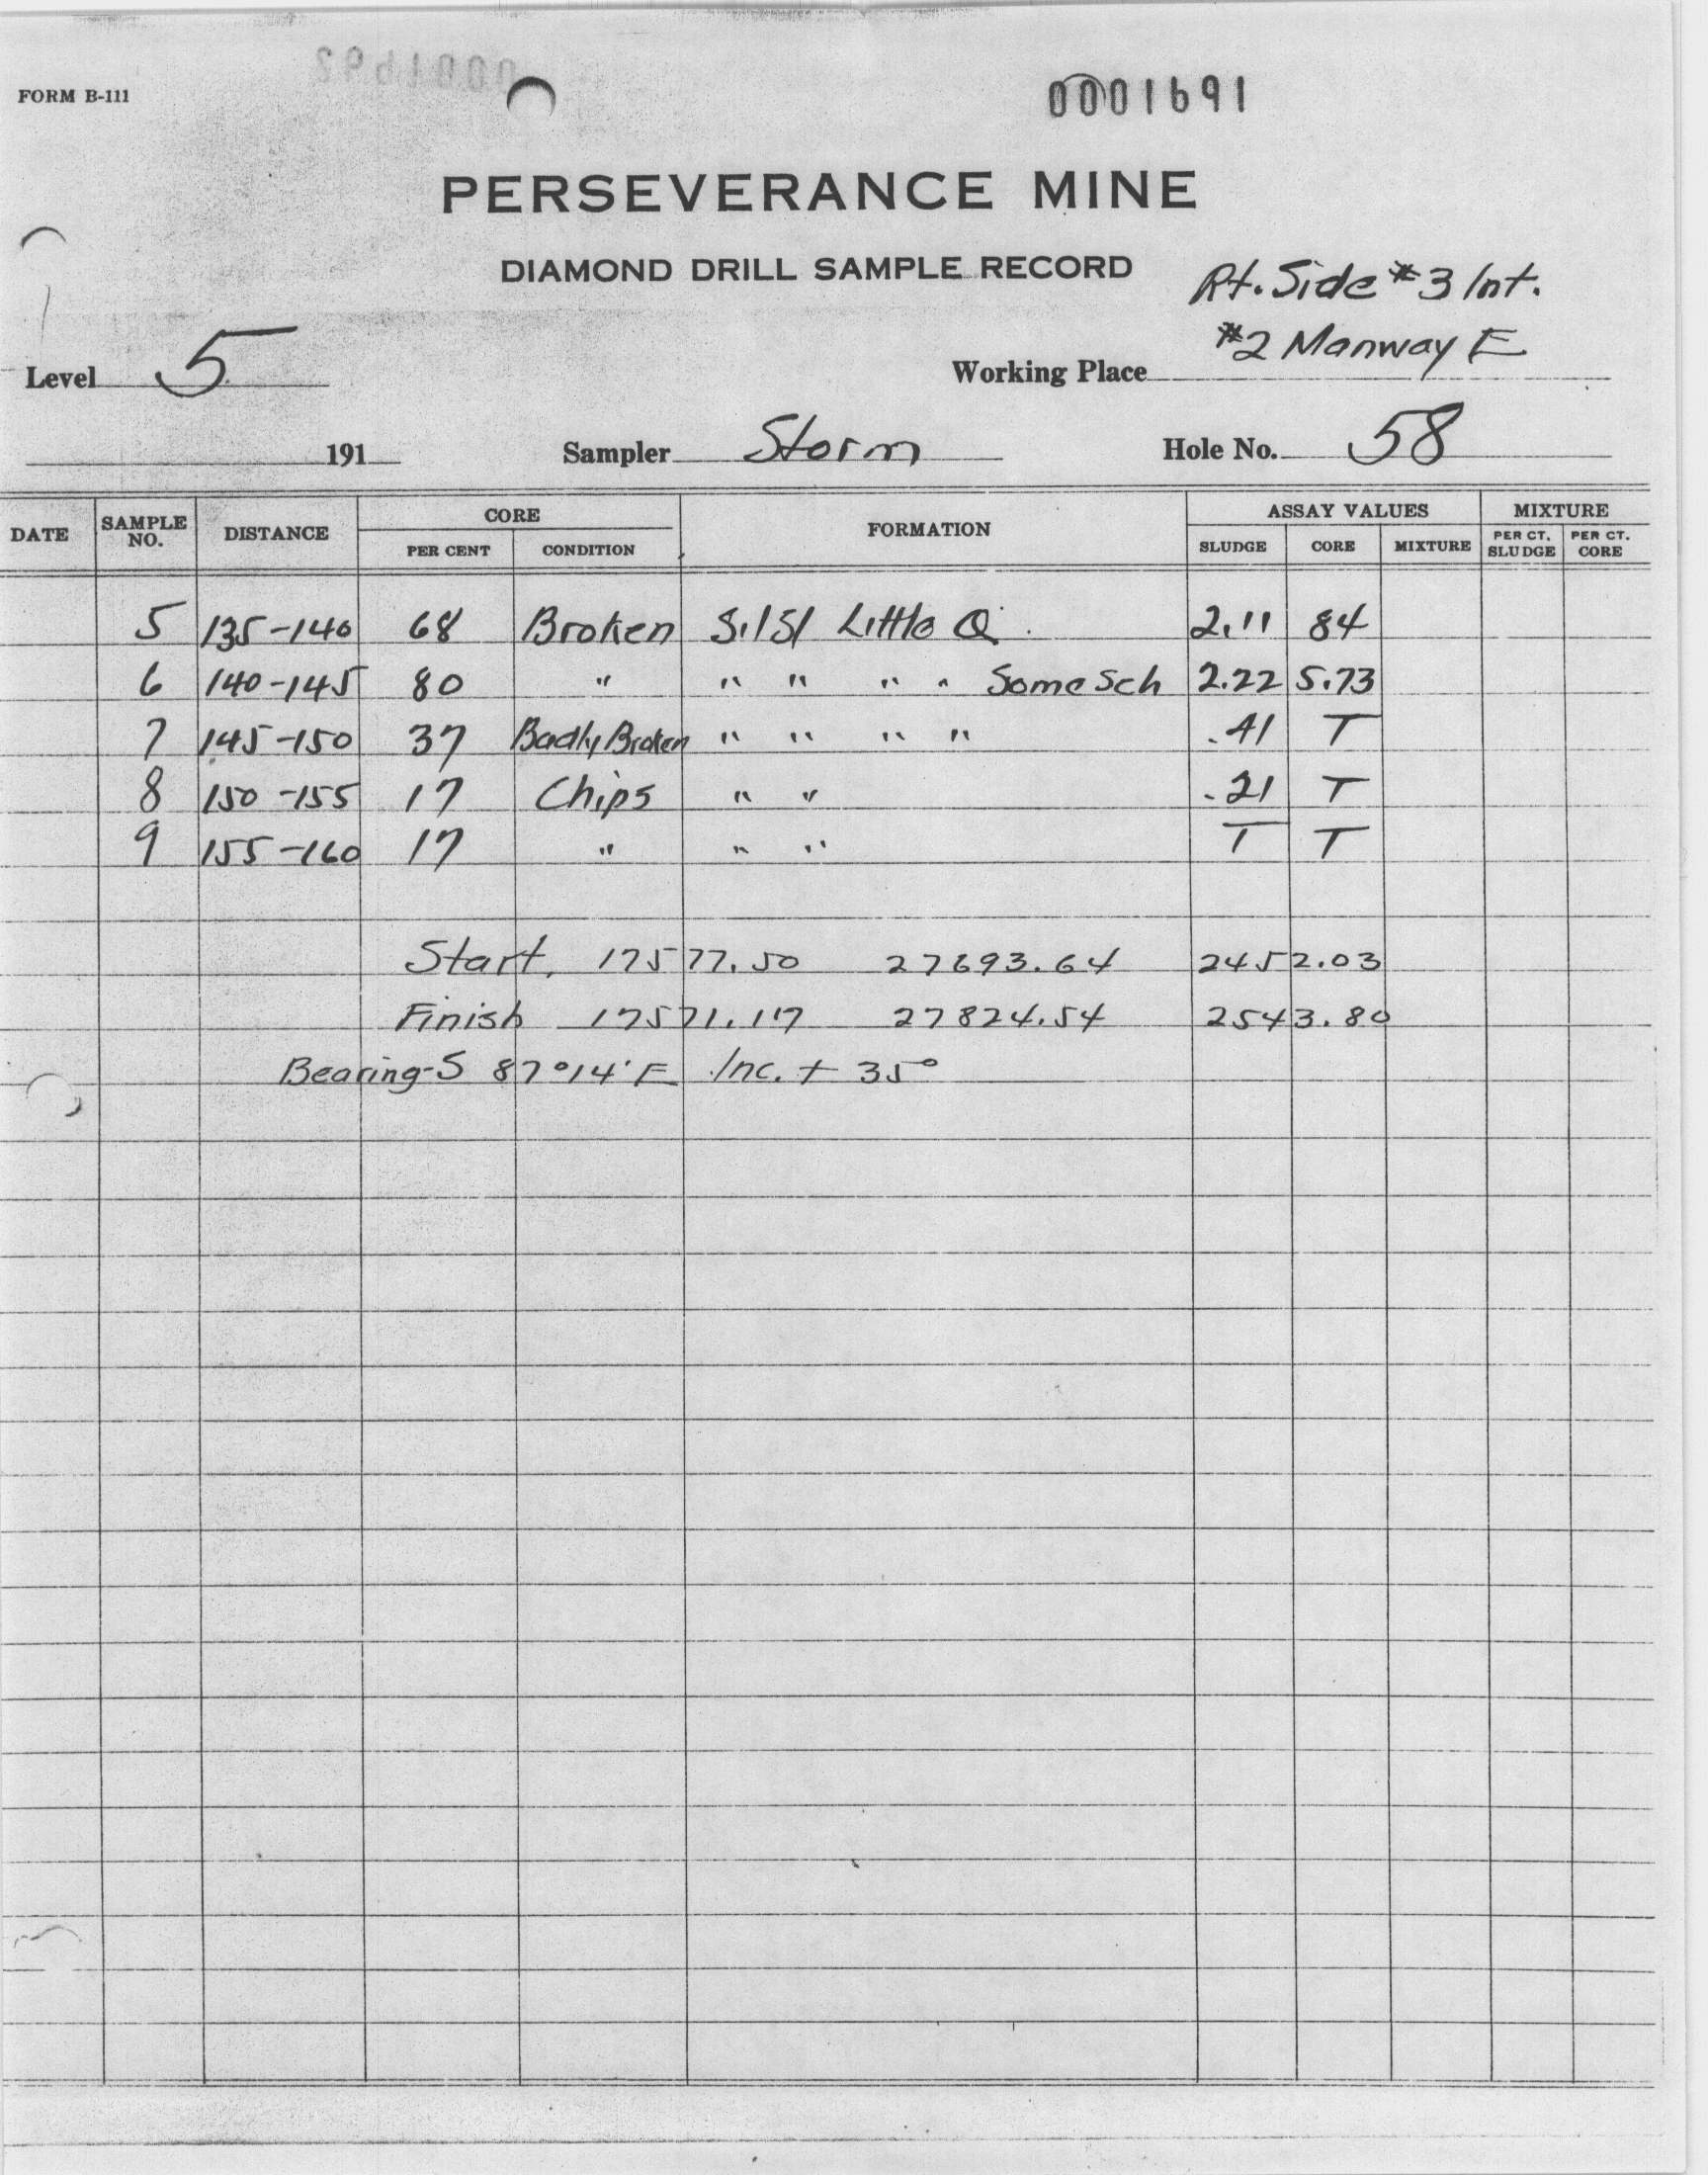 0001692
FORM B-111
0001691
PERSEVERANCE MINE
DIAMOND DRILL SAMPLE RECORD
Rt. Side #3 Int.
#2 Manway E
Level 5 Working Place
191 Sampler Storm Hole No. 58
DATE SAMPLE NO. DISTANCE CORE PER CENT CONDITION FORMATION ASSAY VALUES SLUDGE CORE MIXTURE MIXTURE PER CT. SLUDGE PER CT. CORE
5 135-140 68 Broken Sil Sl Little Q. 2.11 84
6 140-145 80 " " " " " Some Sch 2.22 5.73
7 145-150 37 Badly Broken " " " " .41 T
8 150-155 17 Chips " " .21 T
9 155-160 17 " " " T T
Start. 17577.50 27693.64 2452.03
Finish 17571.17 27824.54 2543.80
Bearing-S 87°14' E Inc. + 35°